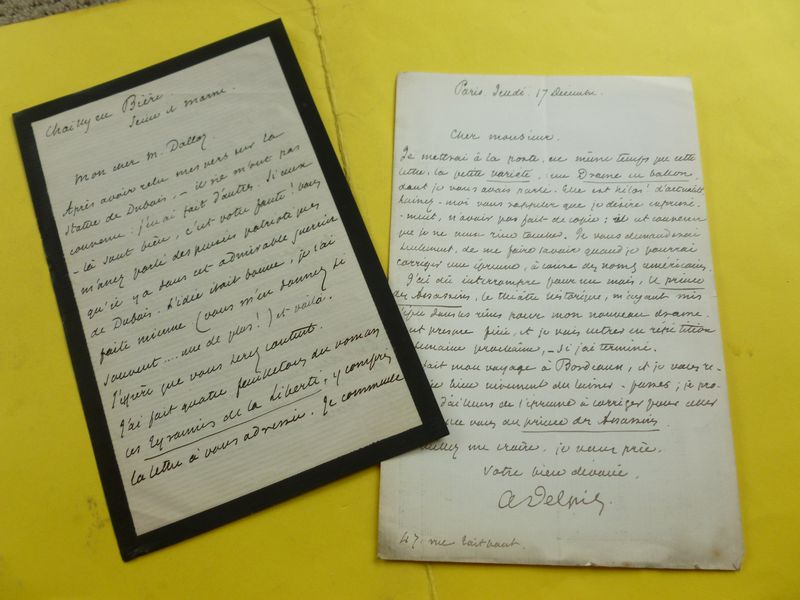 Chailly en Bière
Seine et Marne
Mon cher M. Dalloz
Après avoir relu mes vers sur la
statue de Dubois, - il ne m'ont pas
convenu: j'en ai fait d'autres. Si ceux
-là sont bien, c'est votre faute! Vous
m'avez parlé des pensées patriotiques
qu'il y a dans cet admirable guerrier
de Dubois. L'idée était bonne, je l'ai
faite mienne (vous m'en donnez si
souvent.... une de plus!) et voilà.
J'espère que vous serez content.
J'ai fait quatre feuilletons du roman
Les Tyrannies de la Liberté, y compris
la lettre à vous adressée. Je commence
Paris, Jeudi. 17 Décembre.
Cher monsieur.
Je mettrai à la poste, en même temps que cette
lettre, la petite variété, un Drame en ballon,
dont je vous avais parlé. Elle est d'actualité
Laissez-moi vous rappeler que je désire
-ment, n'avoir pas fait de copie; il est convenu
que je ne veux rien toucher. Je vous demanderai
seulement, de me faire savoir quand je pourrai
corriger une épreuve, à cause des noms américains.
J'ai dû interrompre pour un mois, le prince
des Assassins, le théâtre historique, m'ayant mis
l'épée dans les reins pour mon nouveau drame.
est presque fini, et je vais entrer en répétition
semaine prochaine, - si j'ai terminé.
fait mon voyage à Bordeaux, et je vous re-
bien vivement du laissez-passer; je pro-
d'ailleurs de l'épreuve à corriger pour
vous du prince des Assassins.
me croire, je vous prie,
Votre bien dévoué,
A Delpit.
47. rue Taitbout.